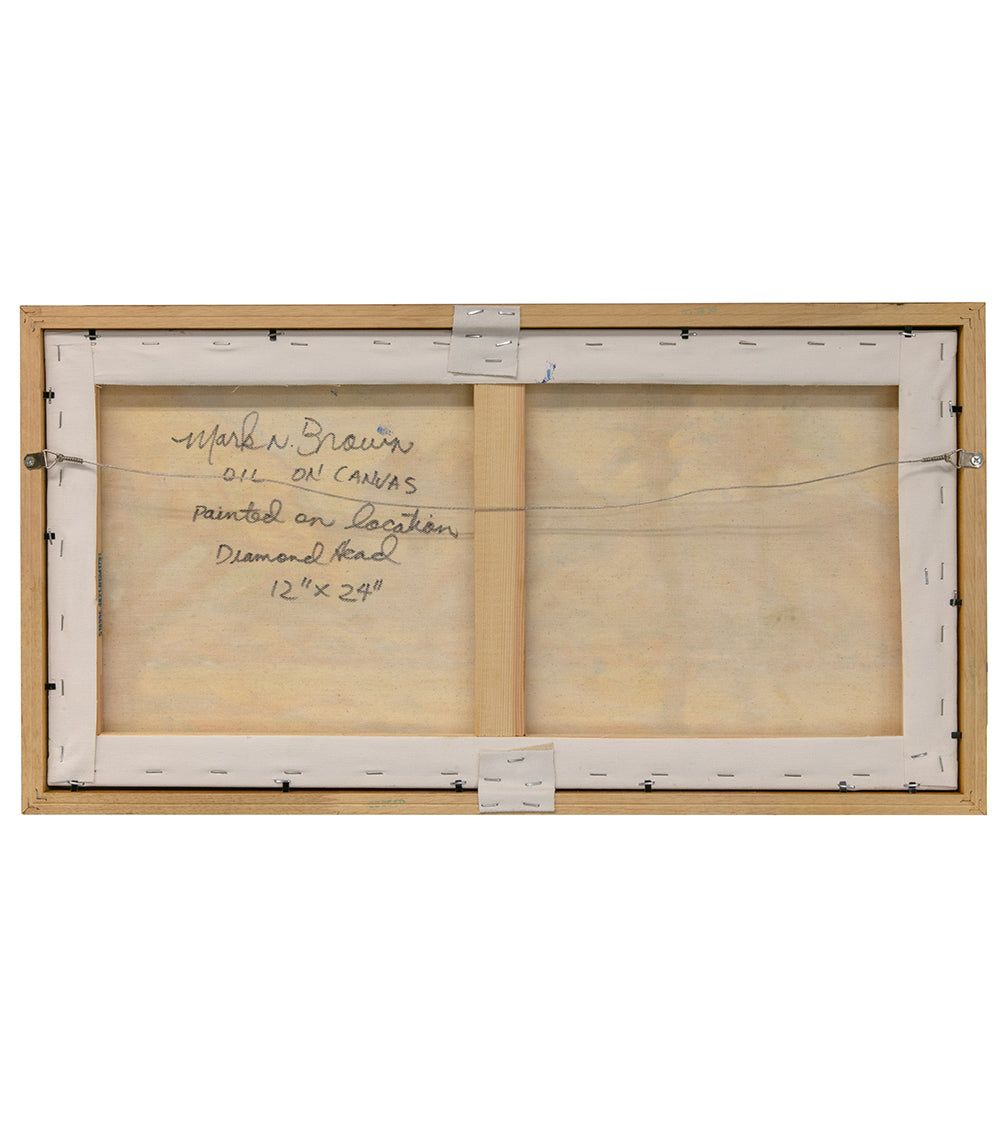 Mark N. Brown
OIL ON CANVAS
Painted on location
Diamond Head
12" x 24"